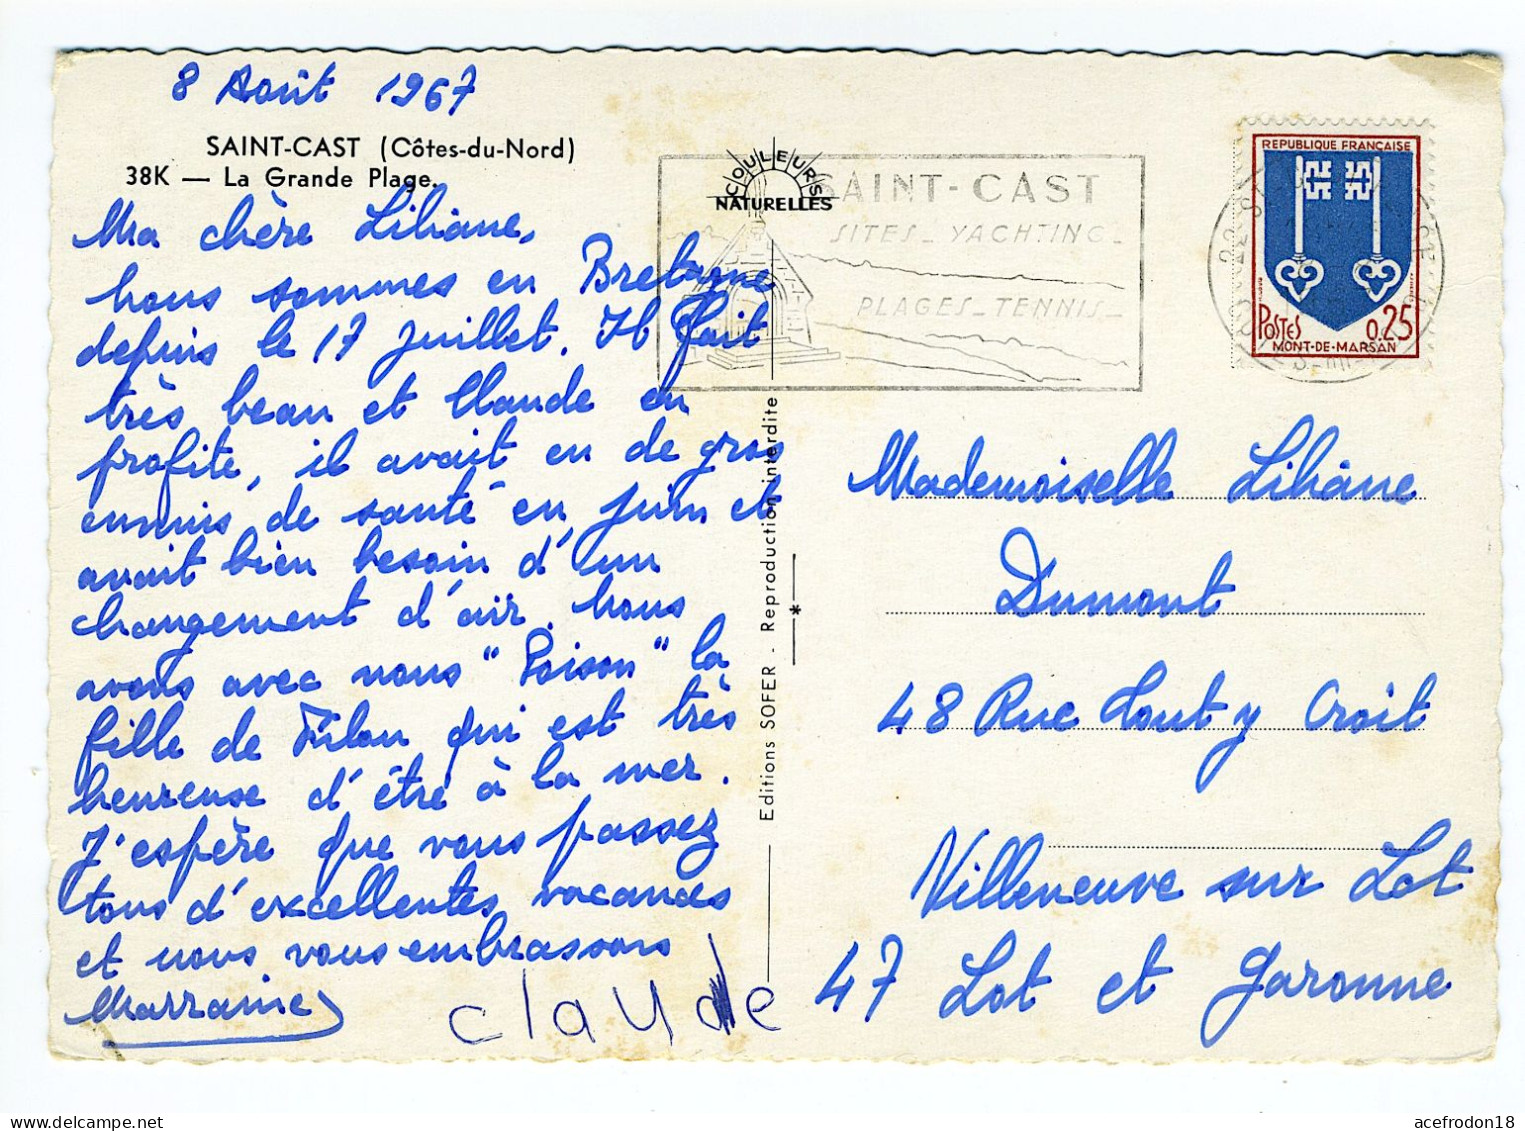 8 Août 1967
SAINT-CAST (Côtes-du-Nord)
38K — La Grande Plage.
Ma chère Liliane,
nous sommes en Bretagne
depuis le 17 juillet. Il fait
très beau et Claude en
profite, il avait eu de gros
ennuis de santé en juin et
avait bien besoin d'un
changement d'air. nous
avons avec nous "Poison" la
fille de qui est très
heureuse d'être à la mer.
J'espère que vous passez
tous d'excellentes vacances
et nous vous embrassons
Marraine
claude
COULEURS
NATURELLES
SAINT-CAST
SITES_YACHTING_
PLAGES_TENNIS_
Editions SOFER - Reproduction interdite
REPUBLIQUE FRANÇAISE
POSTES 0,25
MONT-DE-MARSAN
Mademoiselle Liliane
Dumont
48 Rue Tout y Croit
Villeneuve sur Lot
47 Lot et Garonne
acefrodon18